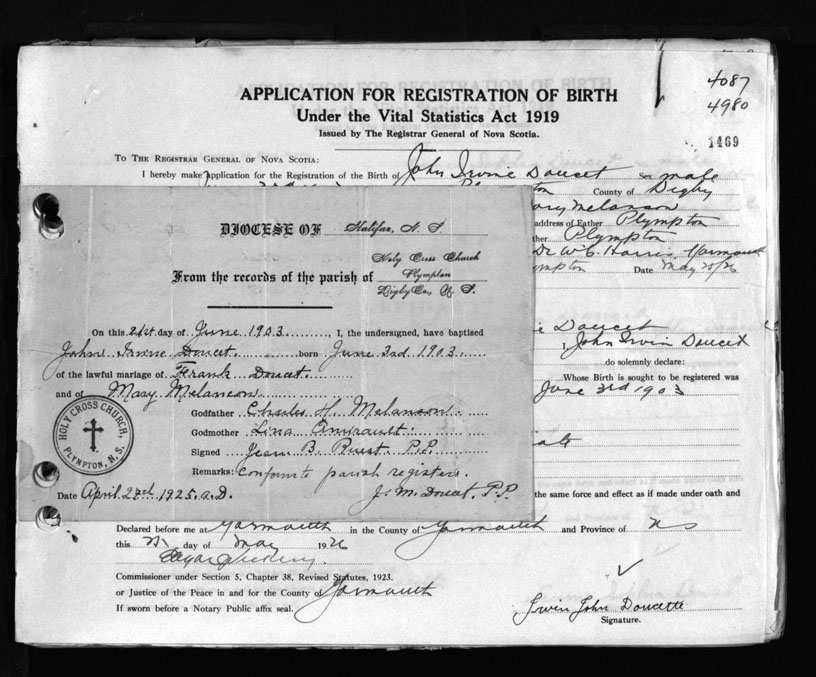 4087
4980
1469
APPLICATION FOR REGISTRATION OF BIRTH
Under the Vital Statistics Act 1919
Issued by The Registrar General of Nova Scotia.
TO THE REGISTRAR GENERAL OF NOVA SCOTIA:
I hereby make application for the Registration of the Birth of John Irvine Doucet Sex male
County of Digby
Mary Melanson
address of Father Plympton
Plympton
Dr W. C. Harris, Yarmouth
Date May 25/26
DIOCESE OF Halifax, N. S.
From the records of the parish of Holy Cross Church
Plympton
Digby Co., N. S.
On this 21st day of June 1903, I, the undersigned, have baptised
John Irvine Doucet born June 3rd 1903
of the lawful mariage of Frank Doucet
and of Mary Melanson
Godfather Charles H. Melanson
Godmother Lina Amirault
Signed Jean B. Ruest. P.P.
Remarks: Conform to parish registers.
Date April 27th 1925. A.D.
J. M. Doucet, P.P.
HOLY CROSS CHURCH, PLYMPTON, N.S.
Doucet
I, John Irvin Doucet
do solemnly declare:
Whose Birth is sought to be registered was
June 3rd 1903
the same force and effect as if made under oath and
Declared before me at Yarmouth in the County of Yarmouth and Province of NS
this 25 day of May 1926
Commissioner under Section 5, Chapter 38, Revised Statutes, 1923.
or Justice of the Peace in and for the County of Yarmouth
If sworn before a Notary Public affix seal.
Irvin John Doucette
Signature.